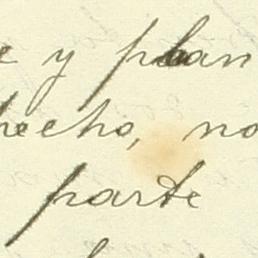 e y plan
hecho, no
parte